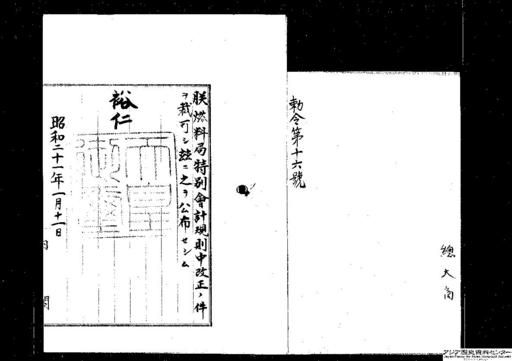 總大商
勅令第十六號
朕燃料局特別會計規則中改正ノ件
ヲ裁可シ茲ニ之ヲ公布セシム
裕仁
天皇
御璽
昭和二十一年一月十一日
アジア歴史資料センター